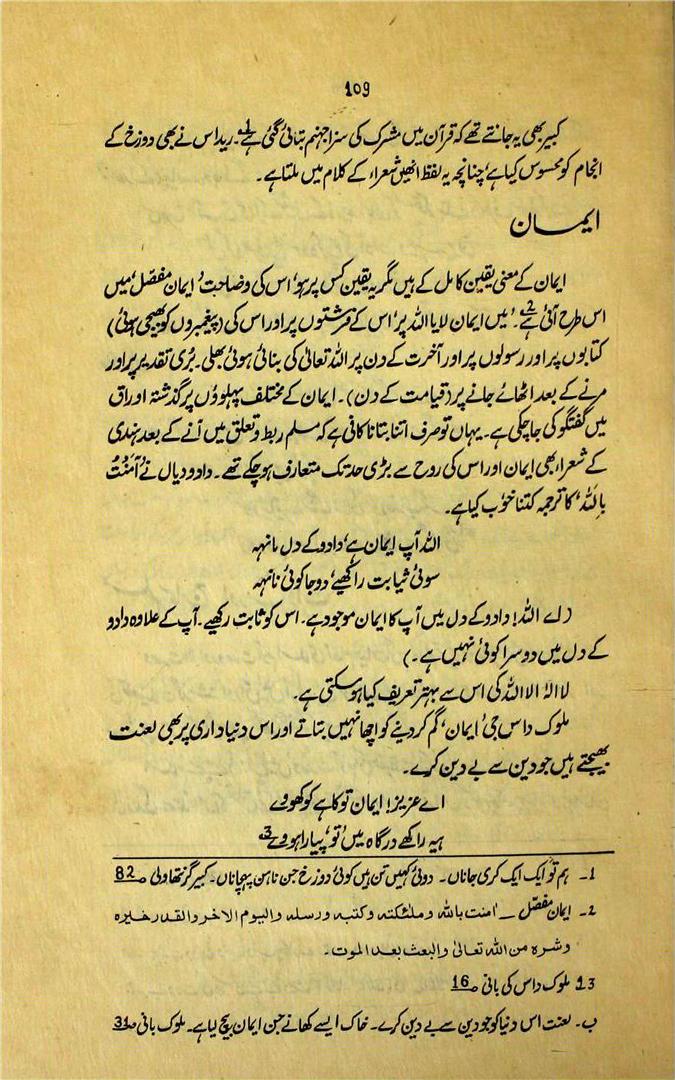 109
کبیر بھی یہ جانتے تھے کہ قرآن میں مشرک کی سزا جہنم بتائی گئی ہے1۔ ریداس نے بھی دوزخ کے
انجام کو محسوس کیا ہے، چنانچہ یہ لفظ انھیں شعراء کے کلام میں ملتا ہے۔
ایمان
ایمان کے معنی یقین کامل کے ہیں مگر یہ یقین کس پر ہو، اس کی وضاحت 'ایمان مفصّل' میں
اس طرح آئی ہے2۔ 'میں ایمان لایا اللہ پر، اس کے فرشتوں پر اور اس کی (پیغمبروں کو بھیجی ہوئی)
کتابوں پر اور رسولوں پر اور آخرت کے دن پر اللہ تعالیٰ کی بنائی ہوئی بھلی۔ بُری تقدیر پر اور
مرنے کے بعد اٹھائے جانے پر (قیامت کے دن)۔ ایمان کے مختلف پہلوؤں پر گذشتہ اوراق
میں گفتگو کی جا چکی ہے۔ یہاں تو صرف اتنا بتانا کافی ہے کہ مسلم ربط و تعلق میں آنے کے بعد ہندی
کے شعراء بھی ایمان اور اس کی روح سے بڑی حد تک متعارف ہو چکے تھے۔ دادو دیال نے 'آمَنْتُ
بِاللہ' کا ترجمہ کتنا خوب کیا ہے۔
اللہ آپ ایمان ہے، دادو کے دل مانہہ
سوئی ثیابت راکھیے، دوجا کوئی نانہہ
(اے اللہ! دادو کے دل میں آپ کا ایمان موجود ہے۔ اس کو ثابت رکھیے۔ آپ کے علاوہ دادو
کے دل میں دوسرا کوئی نہیں ہے۔)
لا الٰہ الا اللہ کی اس سے بہتر تعریف کیا ہو سکتی ہے۔
ملوک داس جی 'ایمان' گم کر دینے کو اچھا نہیں بتاتے اور اس دنیاداری پر بھی لعنت
بھیجتے ہیں جو دین سے بے دین کرے۔
اے عزیز! ایمان تو کاہے کو کھووے
ہیہ راکھے درگاہ میں 'تو' پیارا ہووے3
1۔ ہم تو ایک ایک کری جاناں۔ دوئی کہیں تن ہیں کوئی دوزخ جن ناہن پہچاناں۔ کبیر گرنتھاولی صـ 82
2۔ ایمان مفصّل ـــ اٰمنت باللہ وملٰئکتہ وکتبہ ورسلہ والیوم الاخر والقدر خیرہ
وشرہ من اللہ تعالیٰ والبعث بعد الموت۔
3 1 ملوک داس کی بانی صـ 16
ب۔ لعنت اس دنیا کو جو دین سے بے دین کرے۔ خاک ایسے کھانے جن ایمان بیچ لیا ہے۔ ملوک بانی صـ 31